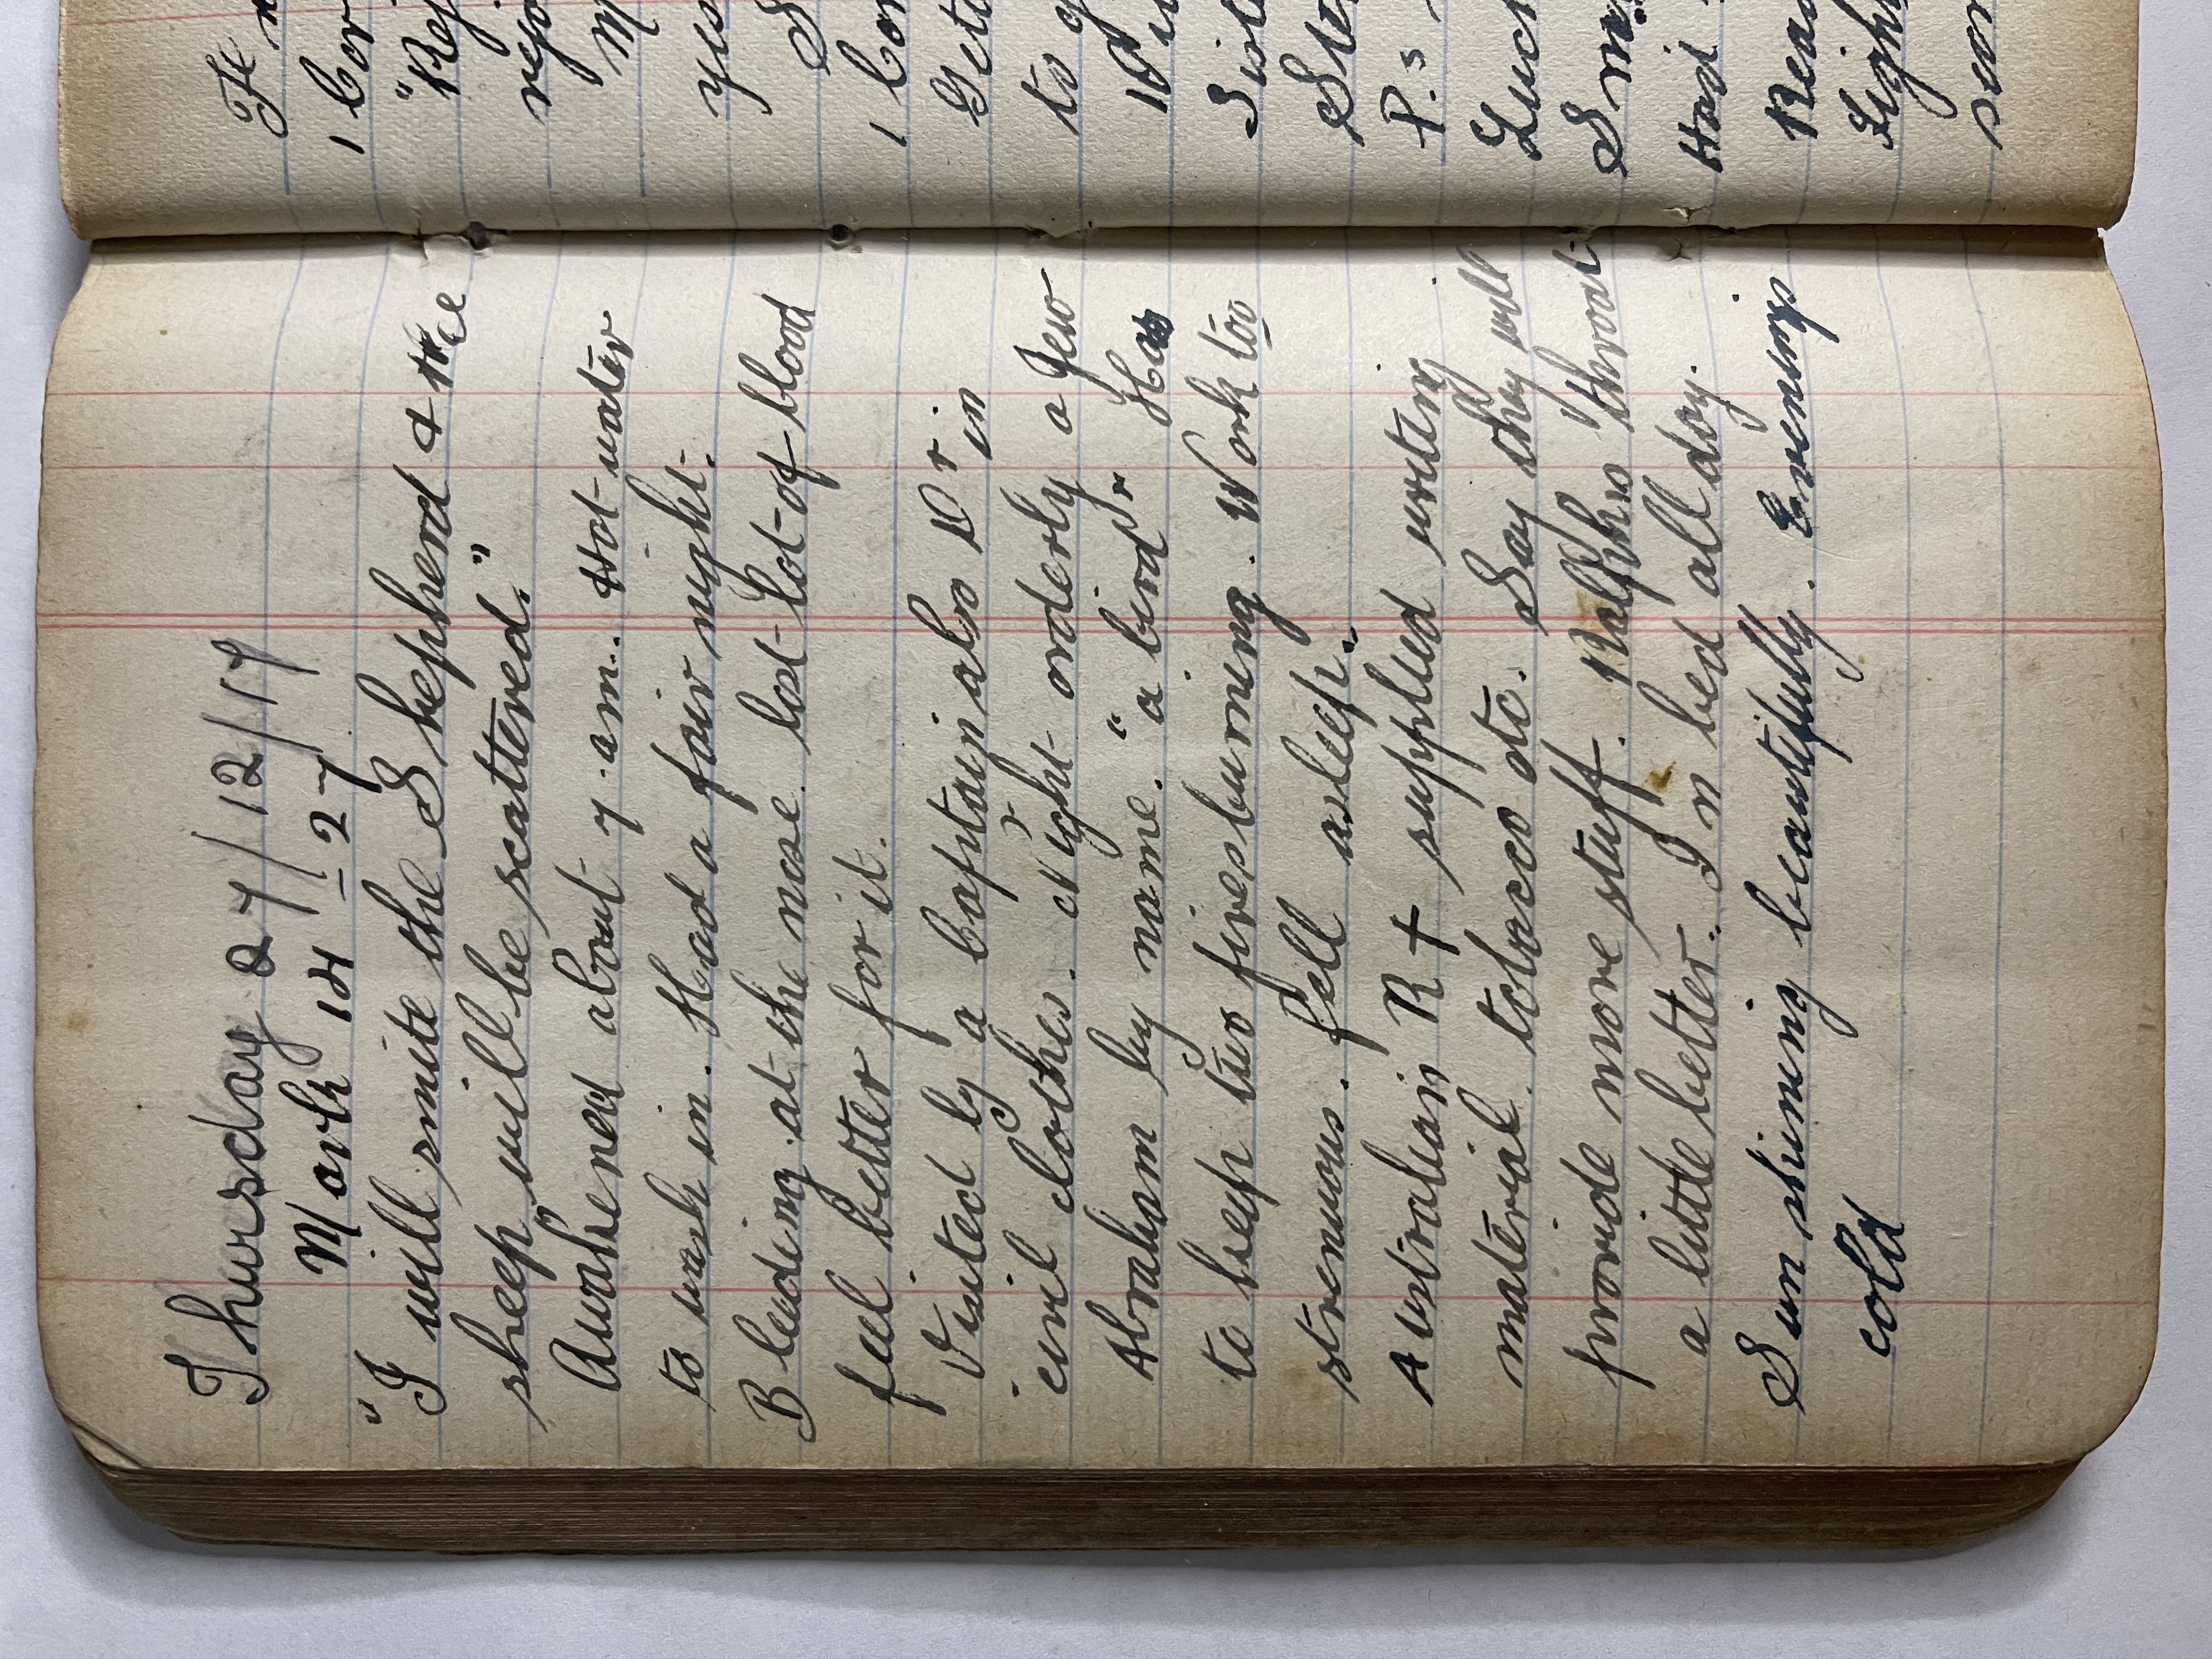 Thursday 27/12/17
Mark 14 - 27
"I will smite the Shepherd & the
sheep will be scattered."
Awakened about 7 am. Hot water
to wash in. Had a fair night.
Bleeding at the nose. lost lot of blood
feel better for it.
Visited by a Captain also Dr in
civil clothes. Night orderly a Jew
Abraham by name. "a bird". Has
to keep two fires burning. Work too
strenuous. fell asleep.
Australian R + supplied writing
material. tobacco etc. Say they will
provide more stuff. Ralphs throat
a little better. In bed all day.
Sun shining beautifully. Evenings
cold
Fr
1 Cor
"Rej
rejo
M
yes
S
1 Cor
to g
Siste
P.s
Lunch
Had
Read
sen